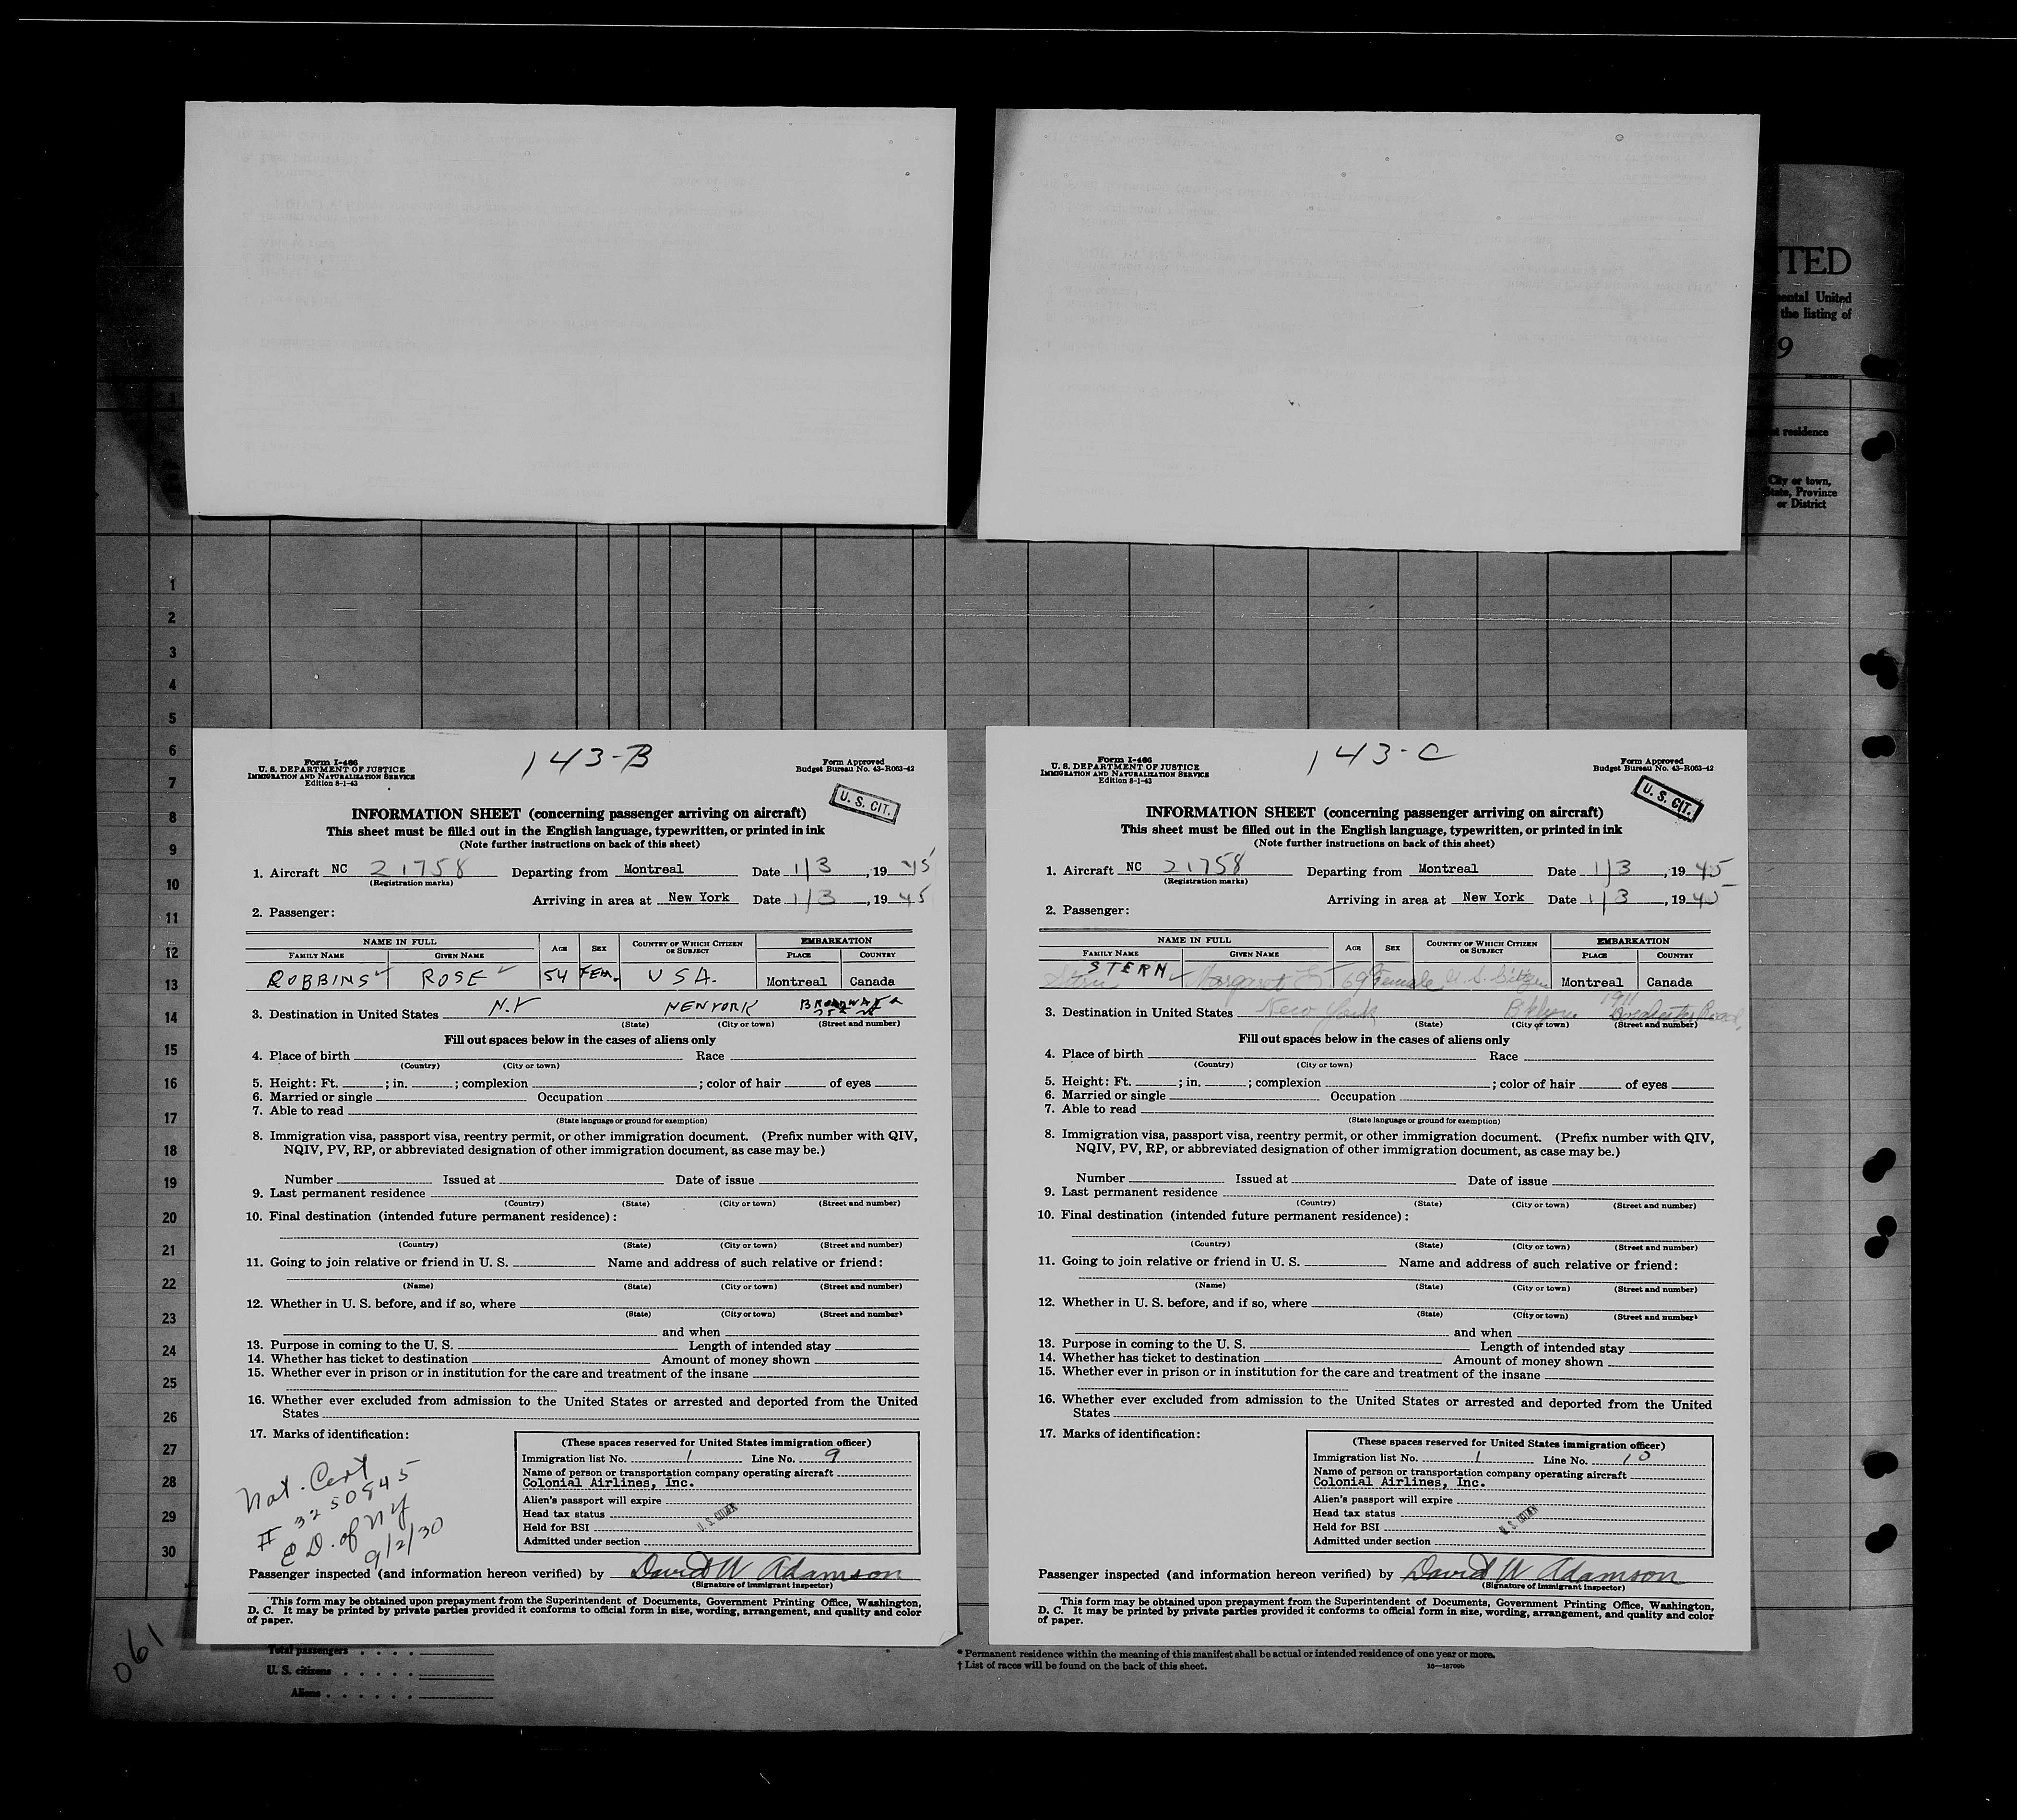 ITED
ental United
the listing of
9
residence
City or town,
State, Province
or District
1
2
3
4
5
6
7
8
9
10
11
12
13
14
15
16
17
18
19
20
21
22
23
24
25
26
27
28
29
30
143-B
Form I-466
U. S. DEPARTMENT OF JUSTICE
IMMIGRATION AND NATURALIZATION SERVICE
Edition 8-1-43
Form Approved
Budget Bureau No. 43-R063-42
U. S. CIT.
INFORMATION SHEET (concerning passenger arriving on aircraft)
This sheet must be filled out in the English language, typewritten, or printed in ink
(Note further instructions on back of this sheet)
1. Aircraft NC 21758 Departing from Montreal Date 1/3, 1945
(Registration marks)
Arriving in area at New York Date 1/3, 1945
2. Passenger:
NAME IN FULL AGE SEX COUNTRY OF WHICH CITIZEN OR SUBJECT EMBARKATION
FAMILY NAME GIVEN NAME PLACE COUNTRY
ROBBINS ROSE 54 FEM. USA. Montreal Canada
3. Destination in United States N.Y NEW YORK BROADWAY
(State) (City or town) (Street and number)
Fill out spaces below in the cases of aliens only
4. Place of birth Race
(Country) (City or town)
5. Height: Ft. ; in. ; complexion ; color of hair of eyes
6. Married or single Occupation
7. Able to read
(State language or ground for exemption)
8. Immigration visa, passport visa, reentry permit, or other immigration document. (Prefix number with QIV,
NQIV, PV, RP, or abbreviated designation of other immigration document, as case may be.)
Number Issued at Date of issue
9. Last permanent residence
(Country) (State) (City or town) (Street and number)
10. Final destination (intended future permanent residence):
(Country) (State) (City or town) (Street and number)
11. Going to join relative or friend in U. S. Name and address of such relative or friend:
(Name) (State) (City or town) (Street and number)
12. Whether in U. S. before, and if so, where
(State) (City or town) (Street and number)
and when
13. Purpose in coming to the U. S. Length of intended stay
14. Whether has ticket to destination Amount of money shown
15. Whether ever in prison or in institution for the care and treatment of the insane
16. Whether ever excluded from admission to the United States or arrested and deported from the United
States
17. Marks of identification:
Nat. Cert
# 3250845
E D. of NY
9/2/30
(These spaces reserved for United States immigration officer)
Immigration list No. 1 Line No. 9
Name of person or transportation company operating aircraft
Colonial Airlines, Inc.
Alien's passport will expire
Head tax status
U. S. CITIZEN
Held for BSI
Admitted under section
Passenger inspected (and information hereon verified) by David W Adamson
(Signature of immigrant inspector)
This form may be obtained upon prepayment from the Superintendent of Documents, Government Printing Office, Washington,
D. C. It may be printed by private parties provided it conforms to official form in size, wording, arrangement, and quality and color
of paper.
143-C
Form I-466
U. S. DEPARTMENT OF JUSTICE
IMMIGRATION AND NATURALIZATION SERVICE
Edition 8-1-43
Form Approved
Budget Bureau No. 43-R063-42
U. S. CIT.
INFORMATION SHEET (concerning passenger arriving on aircraft)
This sheet must be filled out in the English language, typewritten, or printed in ink
(Note further instructions on back of this sheet)
1. Aircraft NC 21758 Departing from Montreal Date 1/3, 1945
(Registration marks)
Arriving in area at New York Date 1/3, 1945
2. Passenger:
NAME IN FULL AGE SEX COUNTRY OF WHICH CITIZEN OR SUBJECT EMBARKATION
FAMILY NAME GIVEN NAME PLACE COUNTRY
STERN
Stern Margaret E 69 Female U. S. Citizen Montreal Canada
3. Destination in United States New York Bklyn. 1911 Road
(State) (City or town) (Street and number)
Fill out spaces below in the cases of aliens only
4. Place of birth Race
(Country) (City or town)
5. Height: Ft. ; in. ; complexion ; color of hair of eyes
6. Married or single Occupation
7. Able to read
(State language or ground for exemption)
8. Immigration visa, passport visa, reentry permit, or other immigration document. (Prefix number with QIV,
NQIV, PV, RP, or abbreviated designation of other immigration document, as case may be.)
Number Issued at Date of issue
9. Last permanent residence
(Country) (State) (City or town) (Street and number)
10. Final destination (intended future permanent residence):
(Country) (State) (City or town) (Street and number)
11. Going to join relative or friend in U. S. Name and address of such relative or friend:
(Name) (State) (City or town) (Street and number)
12. Whether in U. S. before, and if so, where
(State) (City or town) (Street and number)
and when
13. Purpose in coming to the U. S. Length of intended stay
14. Whether has ticket to destination Amount of money shown
15. Whether ever in prison or in institution for the care and treatment of the insane
16. Whether ever excluded from admission to the United States or arrested and deported from the United
States
17. Marks of identification:
(These spaces reserved for United States immigration officer)
Immigration list No. 1 Line No. 10
Name of person or transportation company operating aircraft
Colonial Airlines, Inc.
Alien's passport will expire
Head tax status
U. S. CITIZEN
Held for BSI
Admitted under section
Passenger inspected (and information hereon verified) by David W Adamson
(Signature of immigrant inspector)
This form may be obtained upon prepayment from the Superintendent of Documents, Government Printing Office, Washington,
D. C. It may be printed by private parties provided it conforms to official form in size, wording, arrangement, and quality and color
of paper.
061
Total passengers
U. S. citizens
Aliens
* Permanent residence within the meaning of this manifest shall be actual or intended residence of one year or more.
† List of races will be found on the back of this sheet.